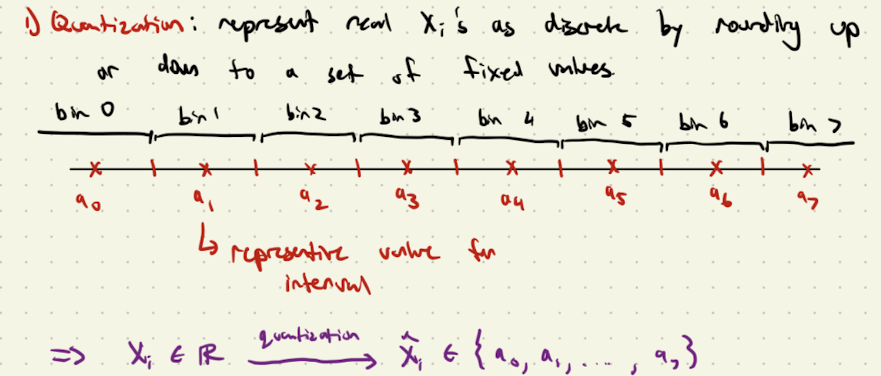 1) Quantization: represent real Xᵢ's as discrete by rounding up
or down to a set of fixed values
bin 0 bin 1 bin 2 bin 3 bin 4 bin 5 bin 6 bin 7
a₀ a₁ a₂ a₃ a₄ a₅ a₆ a₇
↳ representive value for
interval
⇒ Xᵢ ∈ ℝ quantization → X̂ᵢ ∈ {a₀, a₁, ..., a₇}